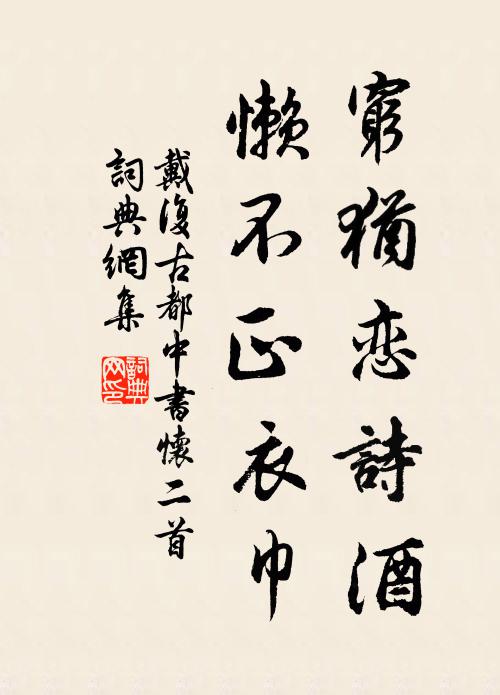 窮猶恋詩酒
懶不正衣巾
戴復古都中書懷二首
詞典網集
詞典網印